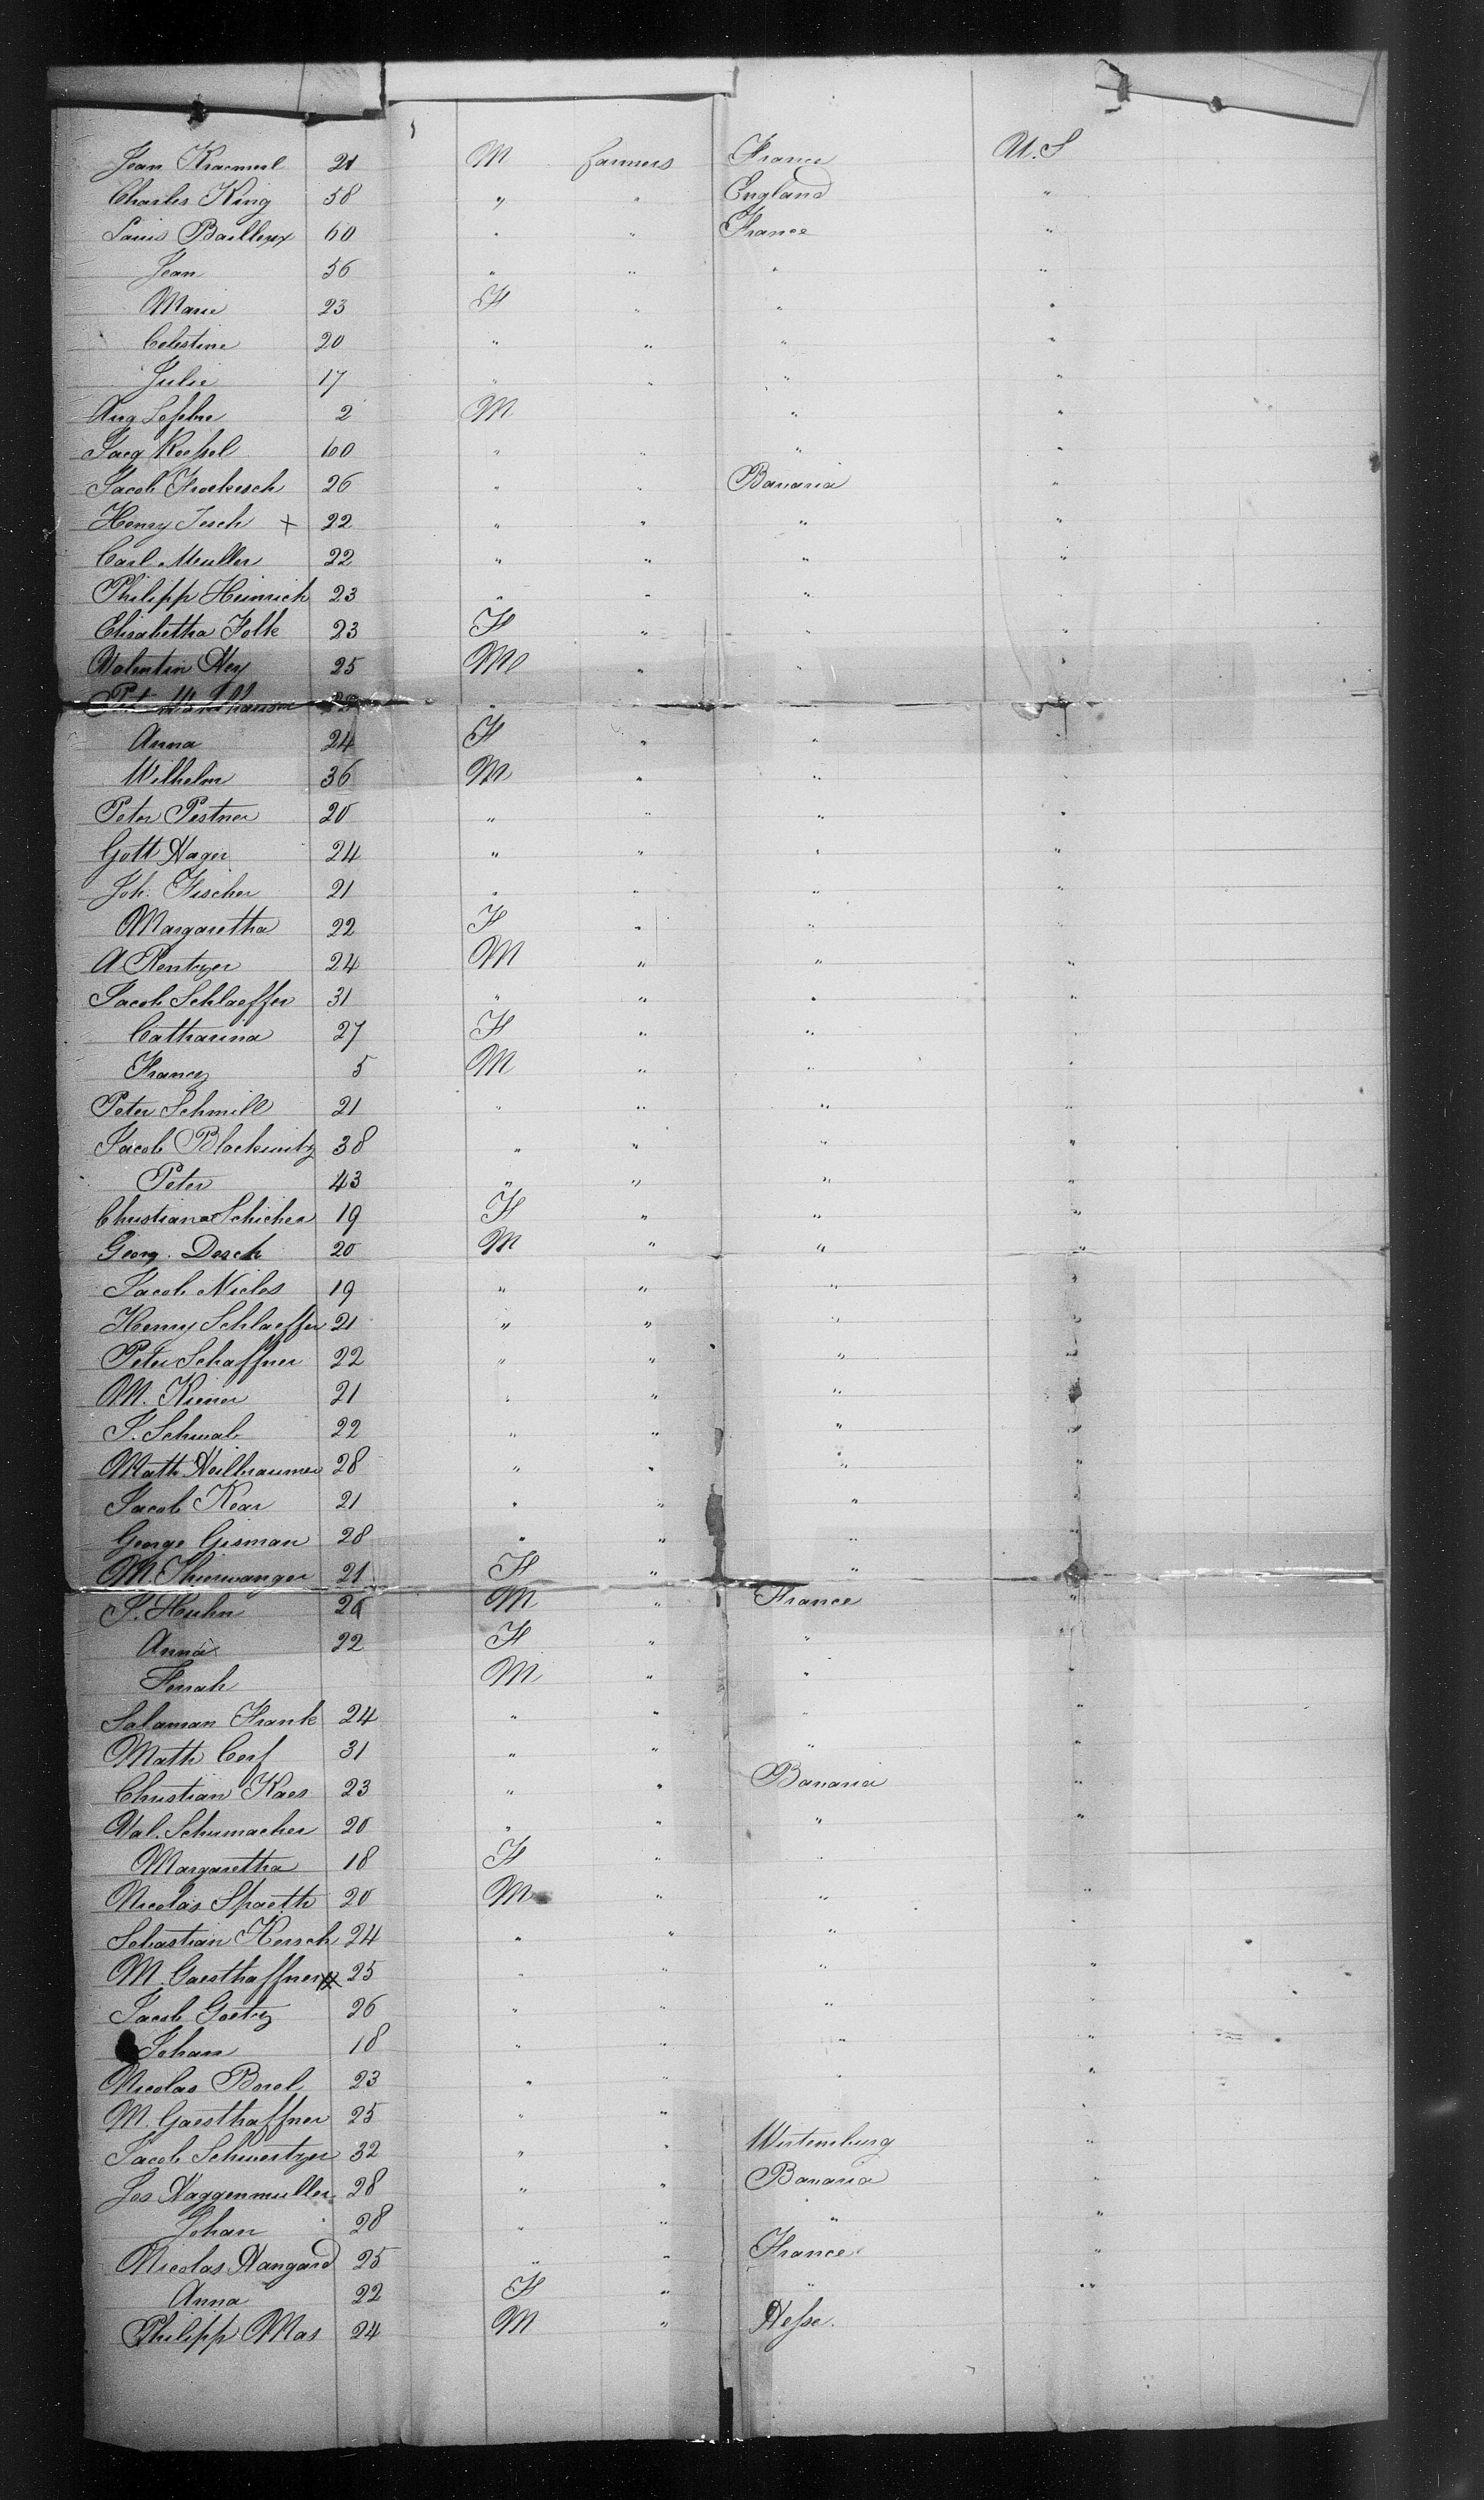 Jean Kraemerl 21 M farmers France U.S
Charles King 58 " " England "
Louis Bailleux 60 " " France "
Jean 56 " " " "
Marie 23 F " " "
Celestine 20 " " " "
Julie 17 " " " "
Aug Lefebre 2 M " "
Jacq Roessel 60 " " " "
Jacob Froekesch 26 " " Bavaria "
Henry Jesch + 22 " " " "
Carl Muller 22 " " " "
Philipp Heinrich 23 " " " "
Elisabetha Folk 23 F " " "
Valentin Hey 25 M " " "
"
Anna 24 F " " "
Wilhelm 36 M " " "
Peter Pestner 20 " " " "
Gott Hager 24 " " " "
Joh. Fischer 21 " " " "
Margaretha 22 F " "
A Rentzer 24 M " " "
Jacob Schlaeffer 31 " " " "
Catharina 27 F " " "
Francz 5 M " " "
Peter Schmill 21 " " " "
Jacob Blockwitz 38 " " " "
Peter 43 " " " "
Christiana Schicher 19 F " " "
Georg. Desch 20 M " " "
Jacob Nicles 19 " " " "
Henry Schlaeffer 21 " " " "
Peter Schaffner 22 " " " "
M. Kiener 21 " " " "
J. Schwab 22 " " " "
Math Heilbraumer 28 " " " "
Jacob Kear 21 " " " "
George Gisman 28 " " " "
M. Thierwanger 21 F " "
J. Huhn 26 M " France "
Anna 22 F " " "
Ferrah M " " "
Salaman Frank 24 " " " "
Math Cerf 31 " " "
Christian Kaes 23 " " Bavaria "
Val. Schumacher 20 " " " "
Margaretha 18 F " "
Nicolas Spaeth 20 M " " "
Sebastian Kersch 24 " " " "
M. Gaesthaffner 25 " " " "
Jacob Goetz 26 " " " "
Johan 18 " " " "
Nicolas Borel 23 " " " "
M. Gaesthaffner 25 " " "
Jacob Schwertzer 32 " " Wirtemburg "
Jos Haggenmuller 28 " " Bavaria "
Johan 28 " " " "
Nicolas Hangard 25 " " France "
Anna 22 F " " "
Philipp Mas 24 M " Hesse.